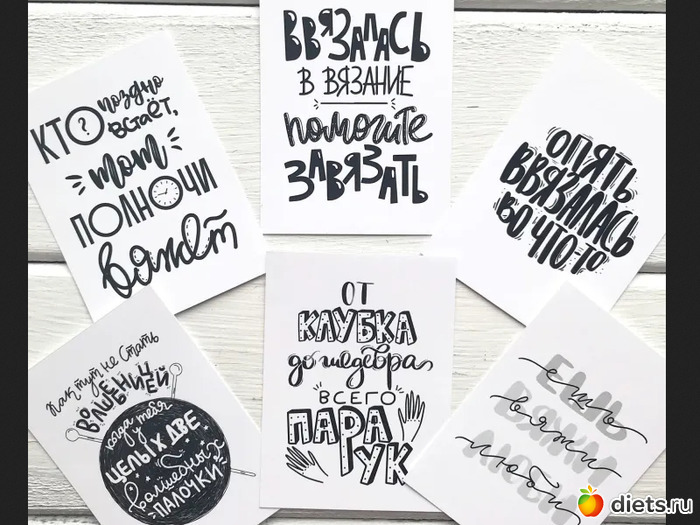 КТО ? поздно
встаёт,
тот
ПОЛНОЧИ
вяжет
ВВЯЗАЛАСЬ
В ВЯЗАНИЕ
помогите
ЗАВЯЗАТЬ
ОПЯТЬ
ВВЯЗАЛАСЬ
ВО ЧТО-ТО
Как тут не стать
ВОЛШЕБНИЦЕЙ
когда у тебя
ЦЕЛЫХ ДВЕ
волшебных
ПАЛОЧКИ
ОТ
КЛУБКА
до шедевра
ВСЕГО
ПАРА
РУК
ЕШЬ
вяжи
ВЯЖИ
люби
ЛЮБИ
diets.ru